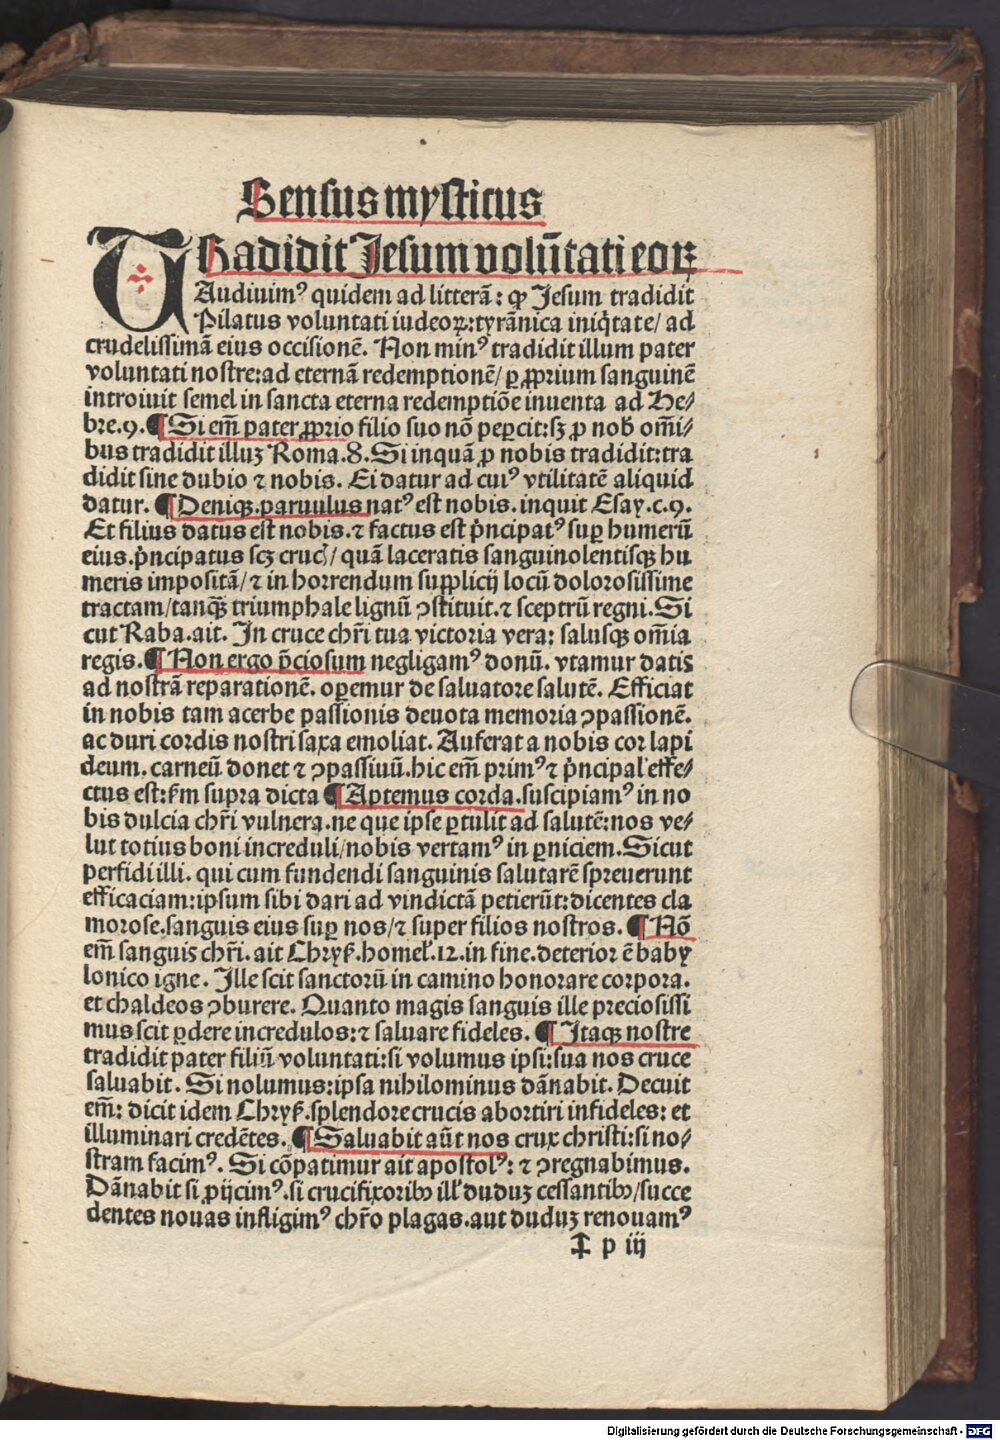 Sensus mysticus
TRadidit Jesum volūtati eoꝝ
Audiuimꝰ quidem ad litterā: ꝙ Jesum tradidit
Pilatus voluntati iudeoꝝ: tyrānica iniq̇tate/ ad
crudelissimā eius occisionē. Non minꝰ tradidit illum pater
voluntati nostre: ad eternā redemptionē/ ꝑ ꝓprium sanguinē
introiuit semel in sancta eterna redemptiōe inuenta ad He⸗
bre.9. ¶ Si em̄ pater ꝓprio filio suo nō peꝑcit: sꝫ ꝓ nob̕ om̄i⸗
bus tradidit illuꝫ Roma.8. Si inquā ꝓ nobis tradidit: tra
didit sine dubio ⁊ nobis. Ei datur ad cuiꝰ vtilitatē aliquid
datur. ¶ Deniqꝫ. paruulus natꝰ est nobis. inquit Esay.c.9.
Et filius datus est nobis. ⁊ factus est pͥncipatꝰ suꝑ humerū
eius. pͥncipatus scꝫ cruc̕/ quā laceratis sanguinolentisqꝫ hu
meris impositā/ ⁊ in horrendum supplicij locū dolorosissime
tractam/ tanqꝫ̄ triumphale lignū ꝯstituit. ⁊ sceptrū regni. Si
cut Raba. ait. In cruce chr̄i tua victoria vera: salusqꝫ om̄ia
regis. ¶ Non ergo p̄ciosum negligamꝰ donū. vtamur datis
ad nostrā reparationē. oꝑemur de saluatore salutē. Efficiat
in nobis tam acerbe passionis deuota memoria ꝯpassionē.
ac duri cordis nostri saxa emoliat. Auferat a nobis cor lapi
deum. carneū donet ⁊ ꝯpassiuū. hic em̄ primꝰ ⁊ pͥncipal̕ effe⸗
ctus est: s̄m supra dicta ¶ Aptemus corda. suscipiamꝰ in no
bis dulcia chr̄i vulnera. ne que ipse ꝑtulit ad salutē: nos ve⸗
lut totius boni increduli/ nobis vertamꝰ in ꝑniciem. Sicut
perfidi illi. qui cum fundendi sanguinis salutarē spreuerunt
efficaciam: ipsum sibi dari ad vindictā petierūt: dicentes cla
morose. sanguis eius suꝑ nos/ ⁊ super filios nostros. ¶ Nō
em̄ sanguis chr̄i. ait Chryſ̕. homel̕.12. in fine. deterior ē baby
lonico igne. Ille scit sanctorū in camino honorare corpora.
et chaldeos ꝯburere. Quanto magis sanguis ille preciosissi
mus scit ꝑdere incredulos: ⁊ saluare fideles. ¶ Itaqꝫ nostre
tradidit pater filiū voluntati: si volumus ipsi: sua nos cruce
saluabit. Si nolumus: ipsa nihilominus dānabit. Decuit
em̄: dicit idem Chryſ̕. splendore crucis abortiri infideles: et
illuminari credētes. ¶ Saluabit aūt nos crux christi: si no⸗
stram facimꝰ. Si cōpatimur ait apostolꝰ: ⁊ ꝯregnabimus.
Dānabit si ꝓijcimꝰ. si crucifixoribꝫ ill̕ duduꝫ cessantibꝫ/ succe
dentes nouas infligimꝰ chr̄o plagas. aut duduꝫ renouamꝰ
‡ p iij
Digitalisierung gefördert durch die Deutsche Forschungsgemeinschaft - DFG